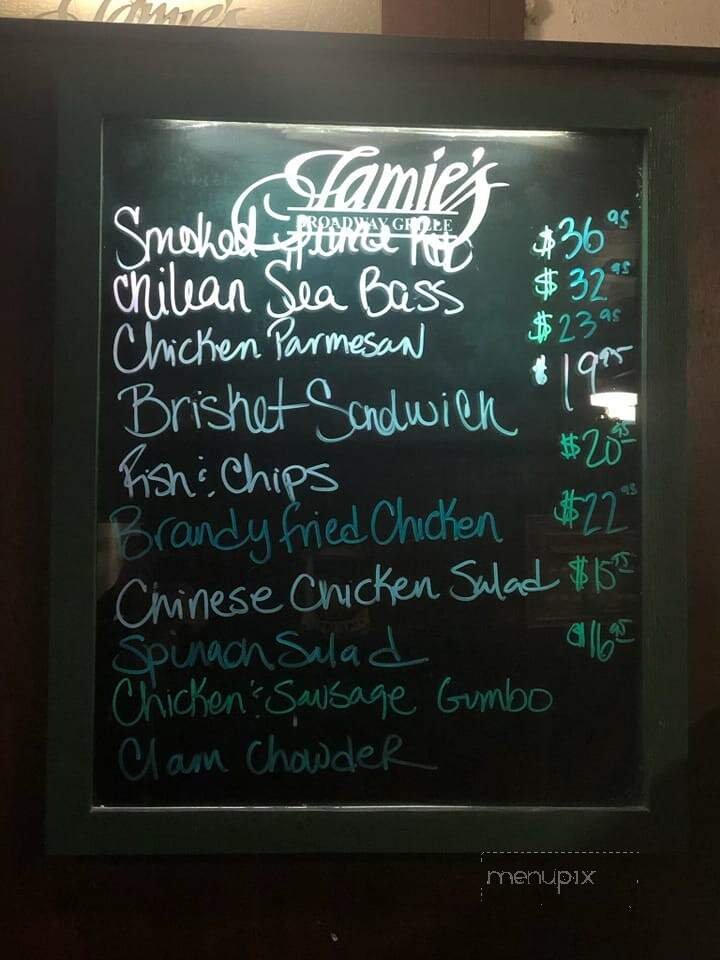 Jamie's
Jamie's
BROADWAY GRILLE
Smoked Prime Rib $36.95
Chilean Sea Bass $32.95
Chicken Parmesan $23.95
Brisket Sandwich $19.95
Fish & Chips $20.95
Brandy Fried Chicken $22.95
Chinese Chicken Salad $15.95
Spinach Salad $16.95
Chicken & Sausage Gumbo
Clam Chowder
menupix